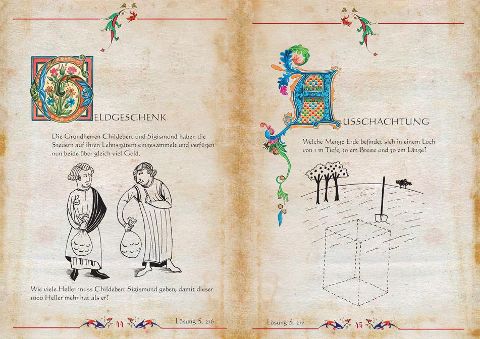 GELDGESCHENK
Die Grundherren Childebert und Sigismund haben die
Steuern auf ihren Lehnsgütern eingesammelt und verfügen
nun beide über gleich viel Geld.
Wie viele Heller muss Childebert Sigismund geben, damit dieser
1000 Heller mehr hat als er?
44
Lösung S. 216
AUSSCHACHTUNG
Welche Menge Erde befindet sich in einem Loch
von 1 m Tiefe, 10 cm Breite und 50 cm Länge?
Lösung S. 217
45